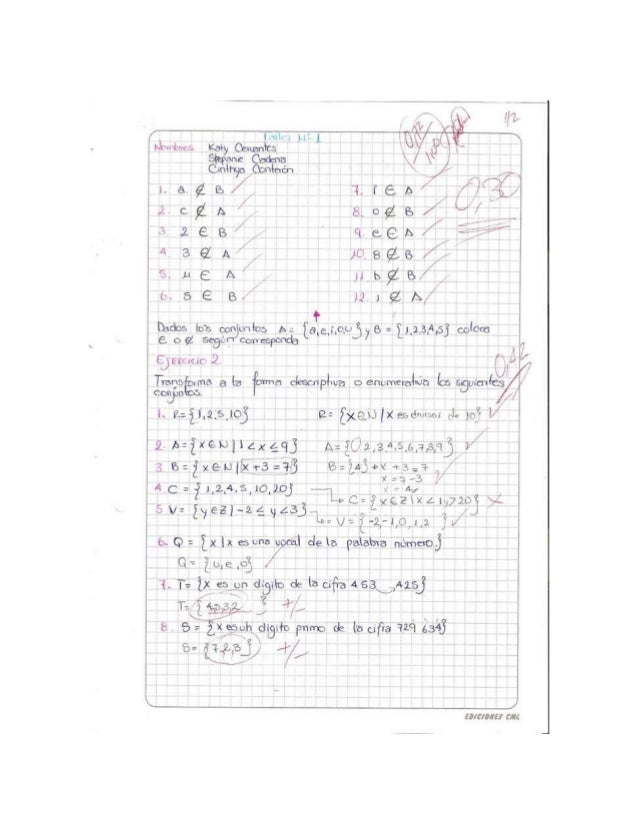 1/2
Taller Nº 1
Nombres Katy Cervantes
Stefanie Cadena
Cinthya Conterón
0,30
1. a ∉ B
2. c ∉ A
3. 2 ∈ B
4. 3 ∉ A
5. u ∈ A
6. 5 ∈ B
7. i ∈ A
8. o ∉ B
9. e ∈ A
10. 8 ∉ B
11. b ∉ B
12. 1 ∉ A
Dados los conjuntos A = {a,e,i,o,u} y B = {1,2,3,4,5} coloca
∈ o ∉ según corresponda
0,42
EJERCICIO 2
Transforma a la forma descriptiva o enumerativa los siguientes
conjuntos.
1. R={1,2,5,10} R= {x∈N | x es divisor de 10}
2. A={x∈N | 1<x≤9} A={2,3,4,5,6,7,8,9}
3. B={x∈N | x+3=7} B={4} x+3=7
x=7-3
x=4
4. C = {1,2,4,5,10,20}
C = {x∈Z | x < 1,>20}
5. V= {y∈Z | -2 ≤ y <3}
V= {-2,-1,0,1,2}
6. Q = {x | x es una vocal de la palabra número}
Q = {u,e,o}
7. T= {x es un dígito de la cifra 453 425}
T= {4,5,3,2 } +/-
8. S = {x es un dígito primo de la cifra 729 634}
S= {7,2,3} +/-
EDICIONES CML